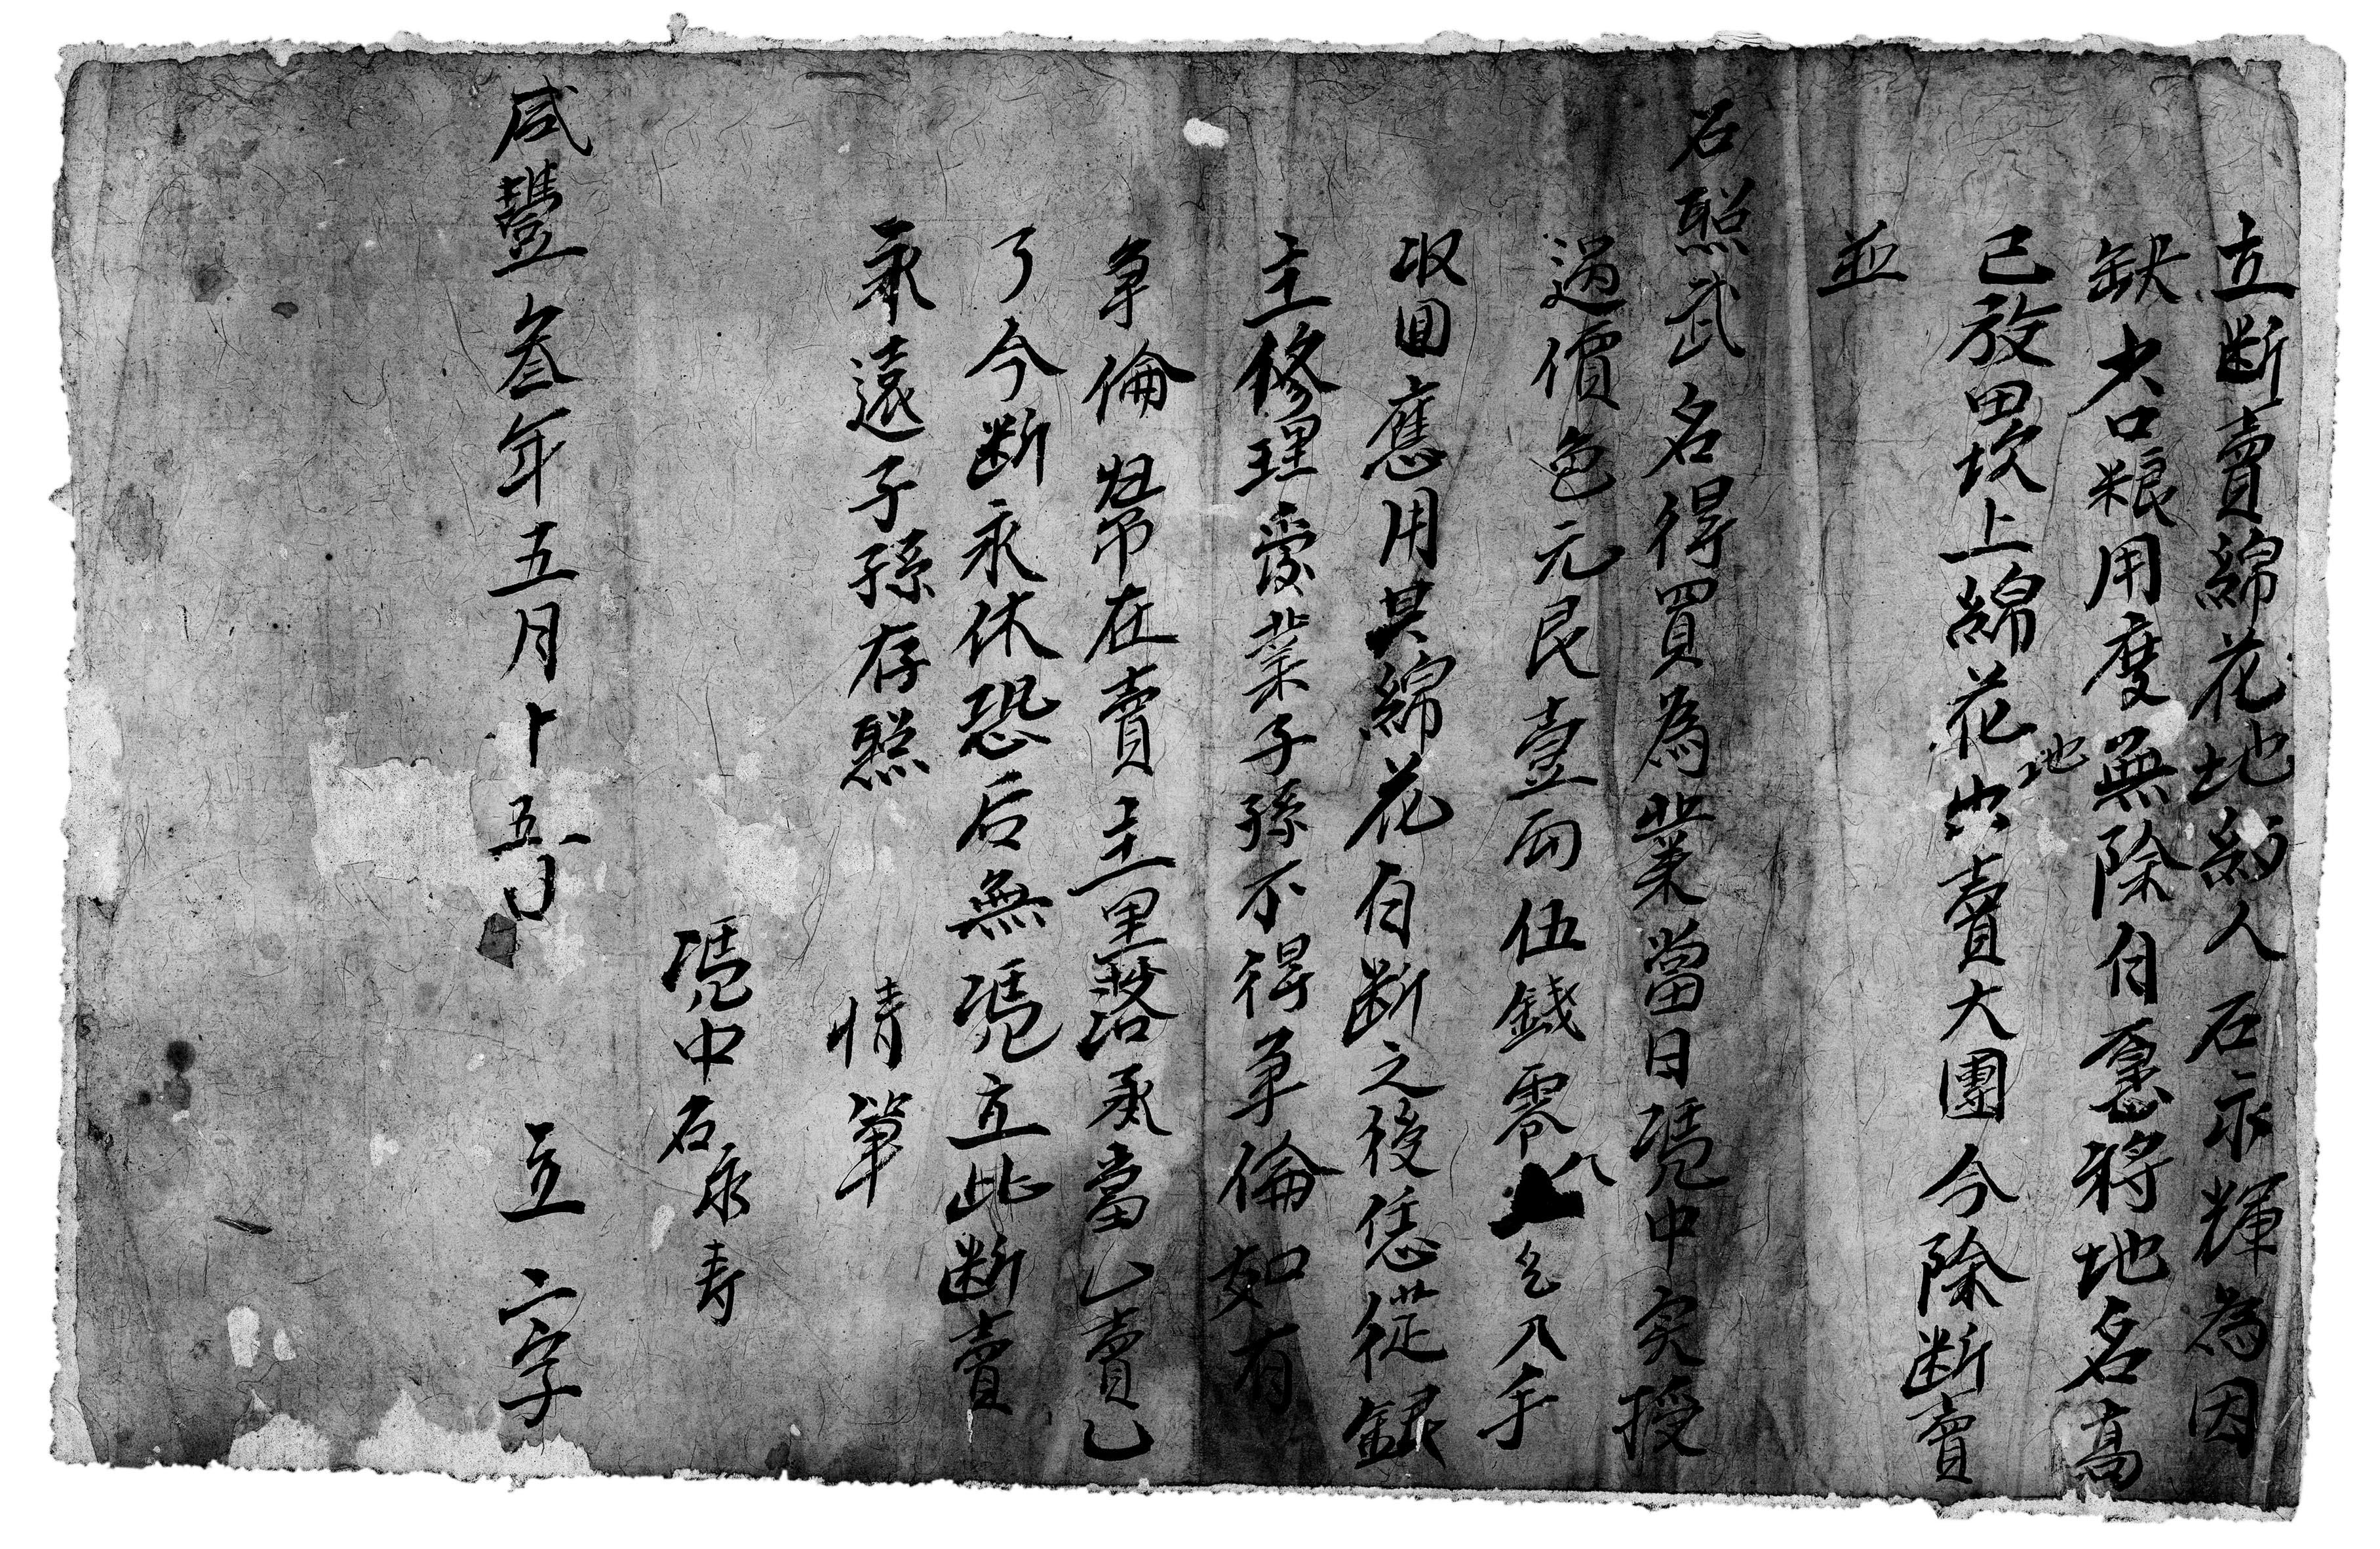 立断賣綿花地約人石永輝為因
缺少口粮用度無除自愿將地名高
已放田坎上綿花地出賣大團今除断賣
並
石熙武名得買為業當日凴中突授
過價色元艮壹両伍錢零八乞入手
収囬應用其綿花自断之後恁從銀
主修理受業子孫不得争倫如有
争倫幇在賣主里落承當乚賣乚
了今断永休恐后無凴立此断賣
永遠子孫存照
情筆
凴中石永寿
咸豐叁年五月十五日 立字